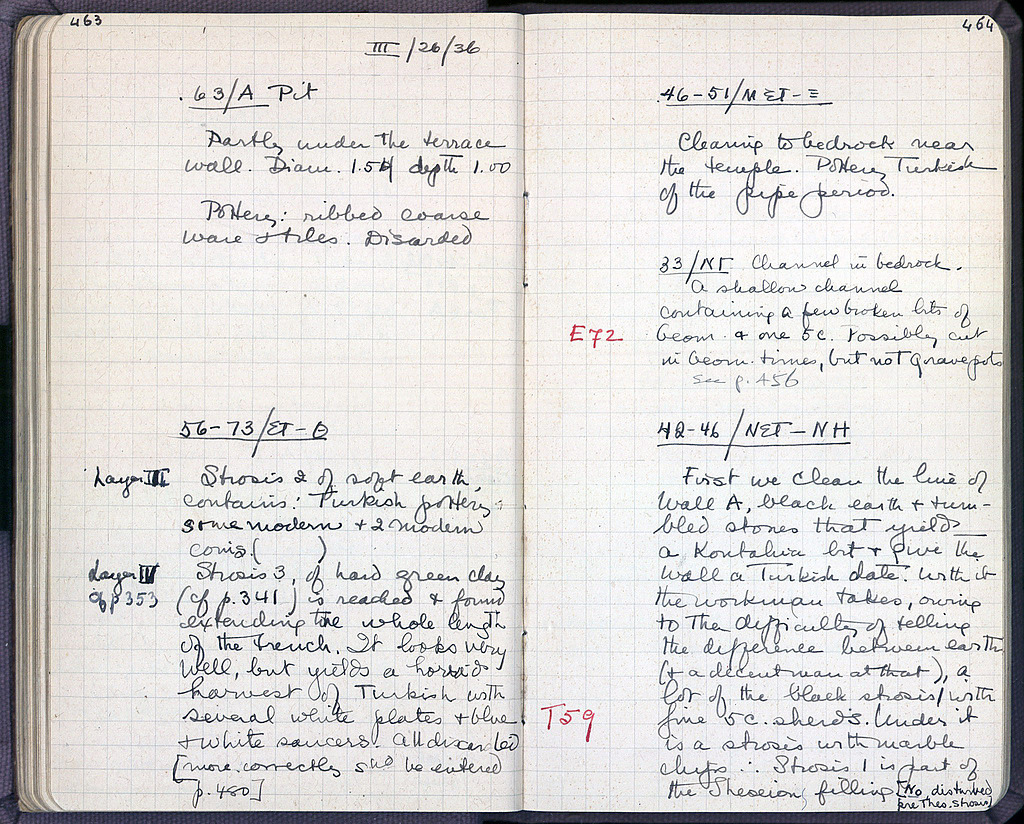 463
III/26/36
63/A Pit
Partly under the terrace
wall. Diam. 1.54 depth 1.00
Pottery: ribbed coarse
ware & tiles. Discarded
56-73/ΕΤ-Θ
Layer III Strosis 2 of soft earth,
contains: Turkish pottery,
some modern + 2 modern
coins. (      )
Layer IV Strosis 3, of hard green clay
cf p 353 (cf p. 341) is reached & found
extending the whole length
of the trench. It looks very
well, but yields a horrid
harvest of Turkish with
several white plates & blue
& white saucers. All discarded
[more correctly shd be entered
p. 480]
464
46-51/ΜΣΤ-Ξ
Clearing to bedrock near
the temple. Pottery Turkish
of the pipe period.
33/ΝΓ Channel in bedrock.
A shallow channel
containing a few broken bits of
E72 Geom. & one 5c. Possibly cut
in Geom. times, but not grave pots
see p. 456
42-46/ΝΣΤ-ΝΗ
First we clean the line of
Wall A, black earth & tum-
bled stones that yield
a Kontahia bit & give the
wall a Turkish date. With it
the workman takes, owing
to the difficulty of telling
the difference between earth
(& a decent man at that), a
lot of the black strosis/with
T59 fine 5c. sherds. Under it
is a strosis with marble
chips ∴ Strosis 1 is part of
the Theseion filling [No disturbed
pre Thes. strosis]